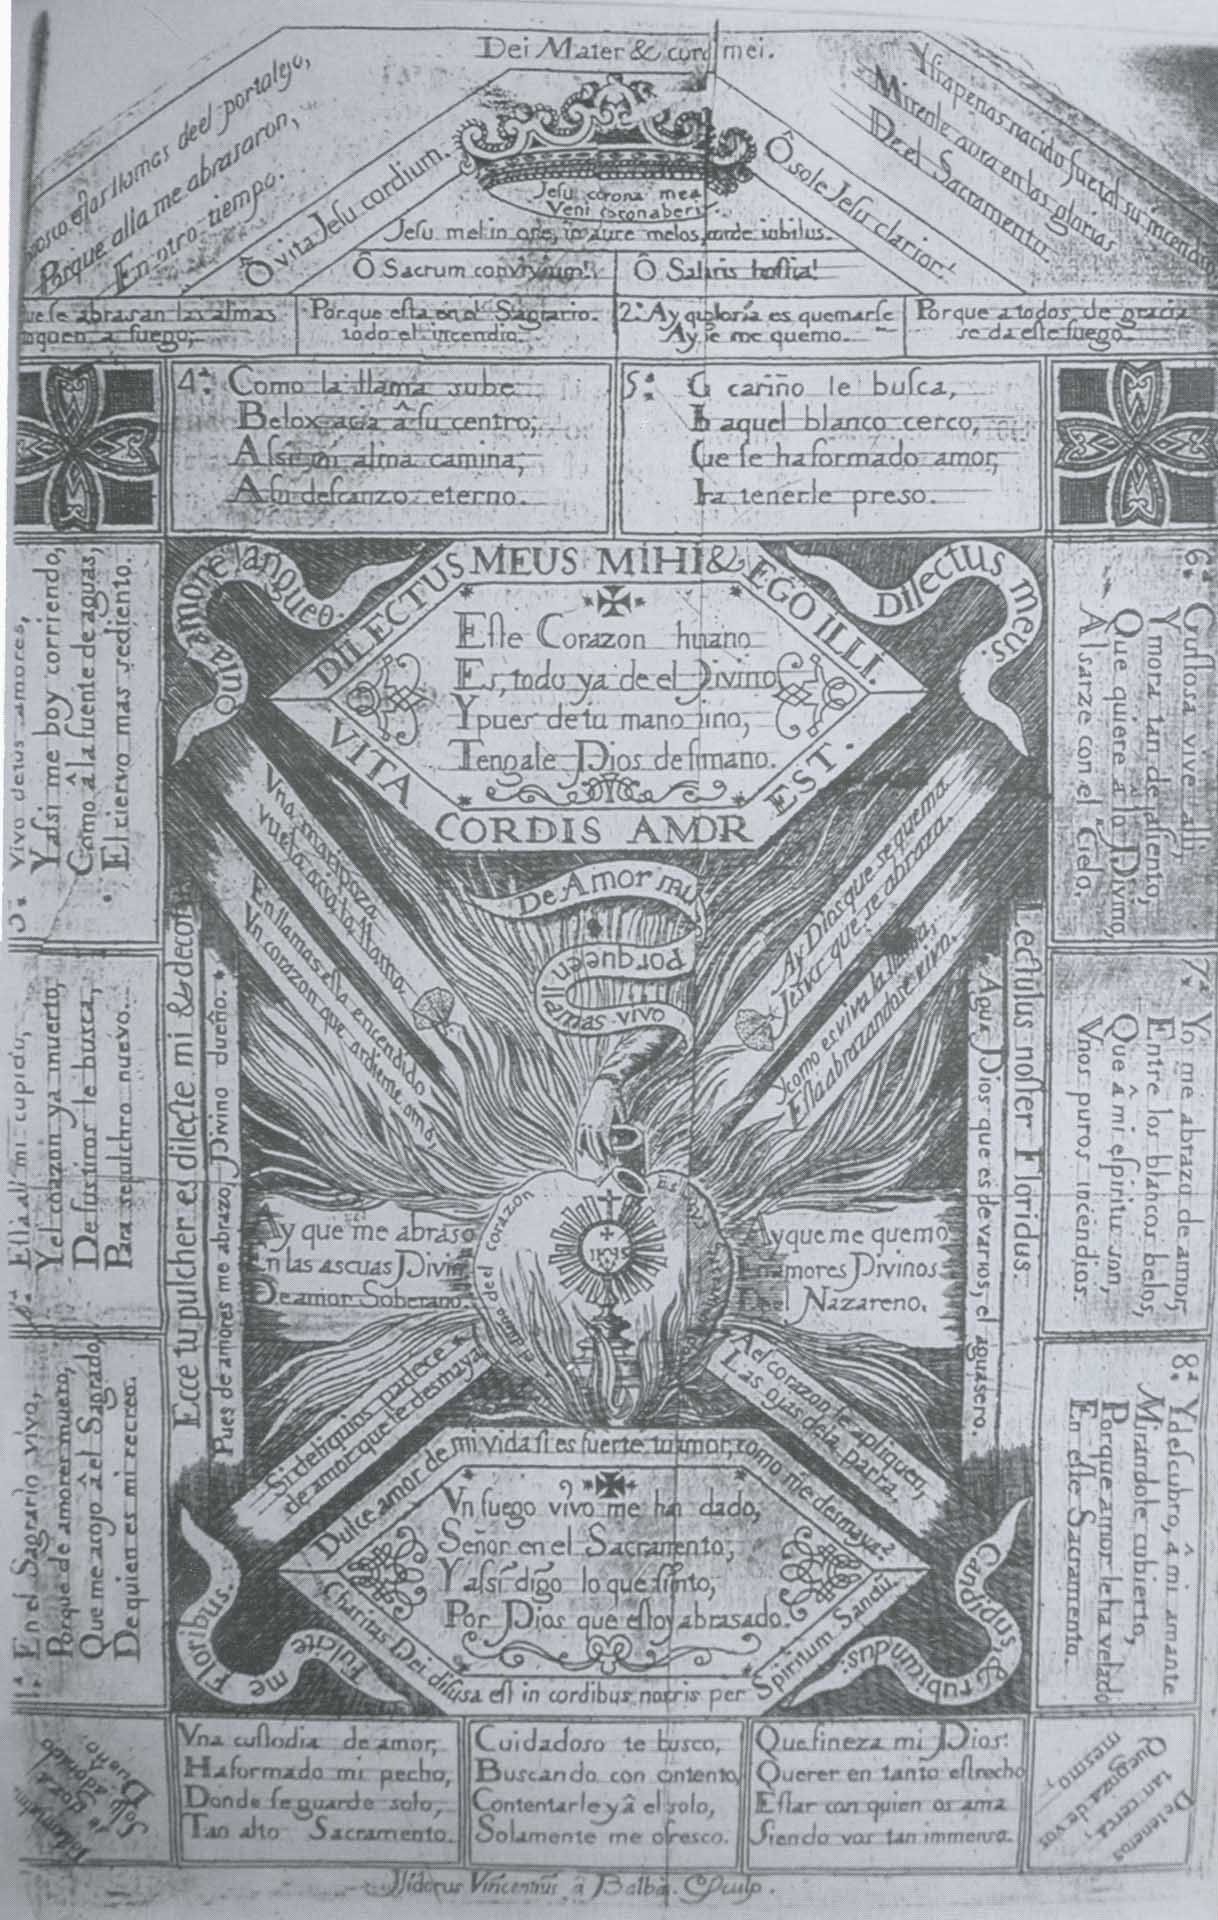 Dei Mater & cord mei.
deel portalejo,
Porque alla me abrasaron,
En otro tiempo.
Ô vita Jesu cordium.
Jesu corona mea
Veni coronaberi
Ô sole Jesu clarior!
Y si apenas nacido fue tal su incendio
Mirenle aura en las glorias
De el Sacramento.
Jesu mel in ore, in aure melos, corde iubilus.
Ô Sacrum convivium!
Ô Salaris hostia!
ue se abrasan las almas
oquen a fuego;
Porque esta en el Sagrario.
todo el incendio.
2.ª Ay q gloria es quemarse
Ay q me quemo.
Porque a todos de gracia
se da este fuego.
4.ª Como la llama sube
Belox acia â su centro;
Assi mi alma camina,
A su descanzo eterno.
5.ª G cariño le busca,
aquel blanco cerco,
Que se ha formado amor,
Pra tenerle preso.
quia amore langueo.
DILECTUS MEUS MIHI & EGO ILLI.
Dilectus meus.
Este Corazon huano
Es, todo ya de el Divino
Y pues de tu mano vino,
Tengale Dios de su mano.
VITA CORDIS AMOR EST.
3.ª Vivo de tus amores,
Y assi me boy corriendo,
Como â la fuente de aguas,
El ciervo mas sediento.
6.ª Gustosa vive alli,
Y mora tan de assiento,
Que quiere a lo Divino,
Alsarze con el Cielo.
Vna mariposa
vuela acia la llama.
En llamas ella encendido
Vn corazon que ardiente ama,
De Amor mu
porque en
llamas vivo
Ay Dios que se quema
Jesvs que se abraza.
Y como es viva la llama,
Esta abrazandose vivo.
Ecce tu pulcher es dilecte mi & decor
Pues de amores me abrazo Divino dueño.
Lectulus noster Floridus.
Agua Dios que es de varios, el aguasero.
Esta ali mi cupido,
Y el corazon ya muerto,
De sus tiros le busca,
Para sepulchro nuevo.
7.ª Yo me abrazo de amor,
Entre los blancos belos,
Que â mi espiritu son,
Vnos puros incendios.
Ay que me abraso
En las ascuas Divin
De amor Soberano.
el duena de el Corazon
es
IHS
Ay que me quemo
En amores Divinos
De el Nazareno.
Si deliquios padece
de amor que le desmaya
A el corazon se apliquen,
Las ojas de la parra.
1.ª En el Sagrario vivo,
Porque de amores muero,
Que me arojo âel Sagrado
De quien es mi recreo.
8.ª Y descubro, â mi amante
Mirandole cubierto,
Porque amor le ha velado
En este Sacramento.
Dulce amor de mi vida si es fuerte tu amor, como me desmaya?
Vn fuego vivo me han dado,
Señor en el Sacramento,
Y assi digo lo que siento,
Por Dios que estoy abrasado.
Charitas Dei difusa est in cordibus nostris per Spiritum Sanctu.
Fulcite me Floribus.
Candidus & rubicundus.
Solo
Dueño.
Vna custodia de amor,
Ha formado mi pecho,
Donde se guarde solo,
Tan alto Sacramento.
Cuidadoso te busco,
Buscando con contento,
Contentarle y â el solo,
Solamente me ofresco.
Que fineza mi Dios!
Querer en tanto estrecho
Estar con quien os ama
Siendo vos tan immenso.
De teneros
tan cerca,
Que goza de vos
mesmo,
Isidorus Vincentius â Balbas. Sculp.